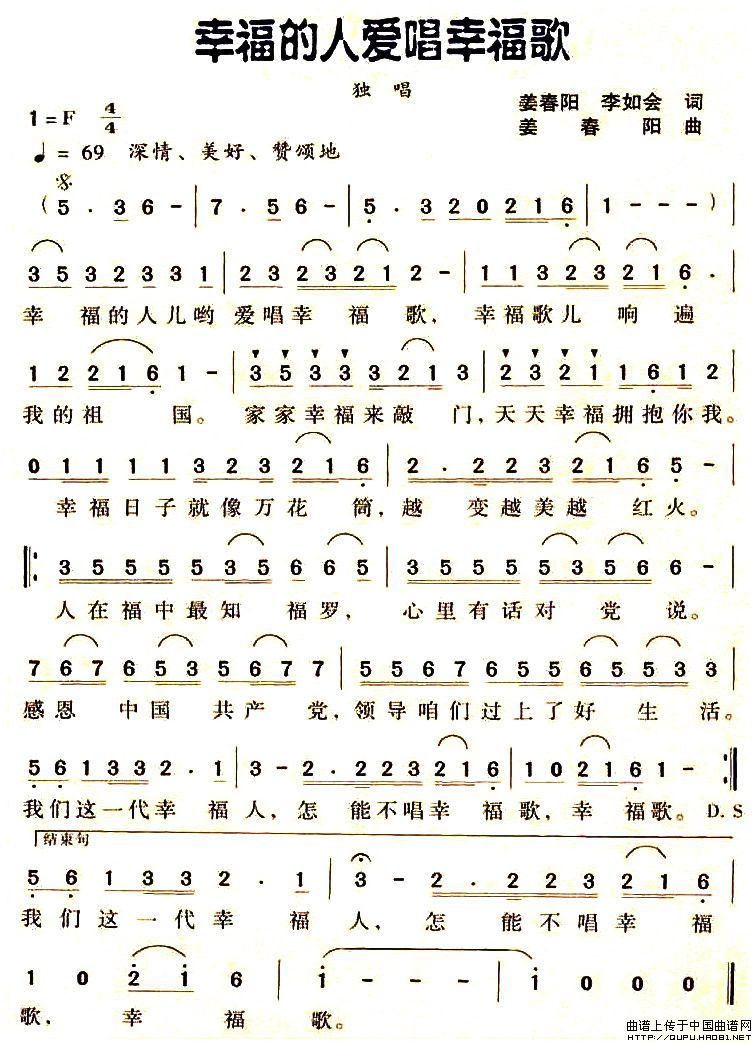 幸福的人爱唱幸福歌
独 唱
姜春阳 李如会 词
1=F 4/4
姜 春 阳 曲
♩= 69 深情、美好、赞颂地
(5 . 3 6 - | 7 . 5 6 - | 5 . 3 2 0 2 1 6 | 1 - - - ) |
3 5 3 2 3 3 1 | 2 3 2 3 2 1 2 - | 1 1 3 2 3 2 1 6 . |
幸 福的人儿哟 爱唱幸 福 歌, 幸福歌儿 响 遍
1 2 2 1 6 1 - | 3 5 3 3 3 2 1 3 | 2 3 2 1 1 6 1 2 |
我的祖 国。 家家幸福来敲 门,天天幸福拥抱你我。
0 1 1 1 1 3 2 3 2 1 6 | 2 . 2 2 3 2 1 6 5 - |
幸福日子就像万花 筒,越 变越美越 红火。
3 5 5 5 5 3 5 6 6 5 | 3 5 5 5 5 3 5 6 6 - |
人在福中最知 福罗, 心里有话对 党 说。
7 6 7 6 5 3 5 6 7 7 | 5 5 6 7 6 5 5 6 5 5 3 3 |
感恩 中国 共产 党,领导咱们过上了好 生 活。
5 6 1 3 3 2 . 1 | 3 - 2 . 2 2 3 2 1 6 | 1 0 2 1 6 1 - :||
我们这一代幸 福人,怎 能不唱幸 福歌,幸 福歌。D.S
结束句
5 6 1 3 3 2 . 1 | 3 - 2 . 2 2 3 2 1 6 |
我们这一代幸 福 人, 怎 能不唱幸 福
1 0 2 1 6 | 1 - - - | 1 0 0 0 ||
歌, 幸 福 歌。
曲谱上传于中国曲谱网
HTTP://QUPU.HAO81.NET